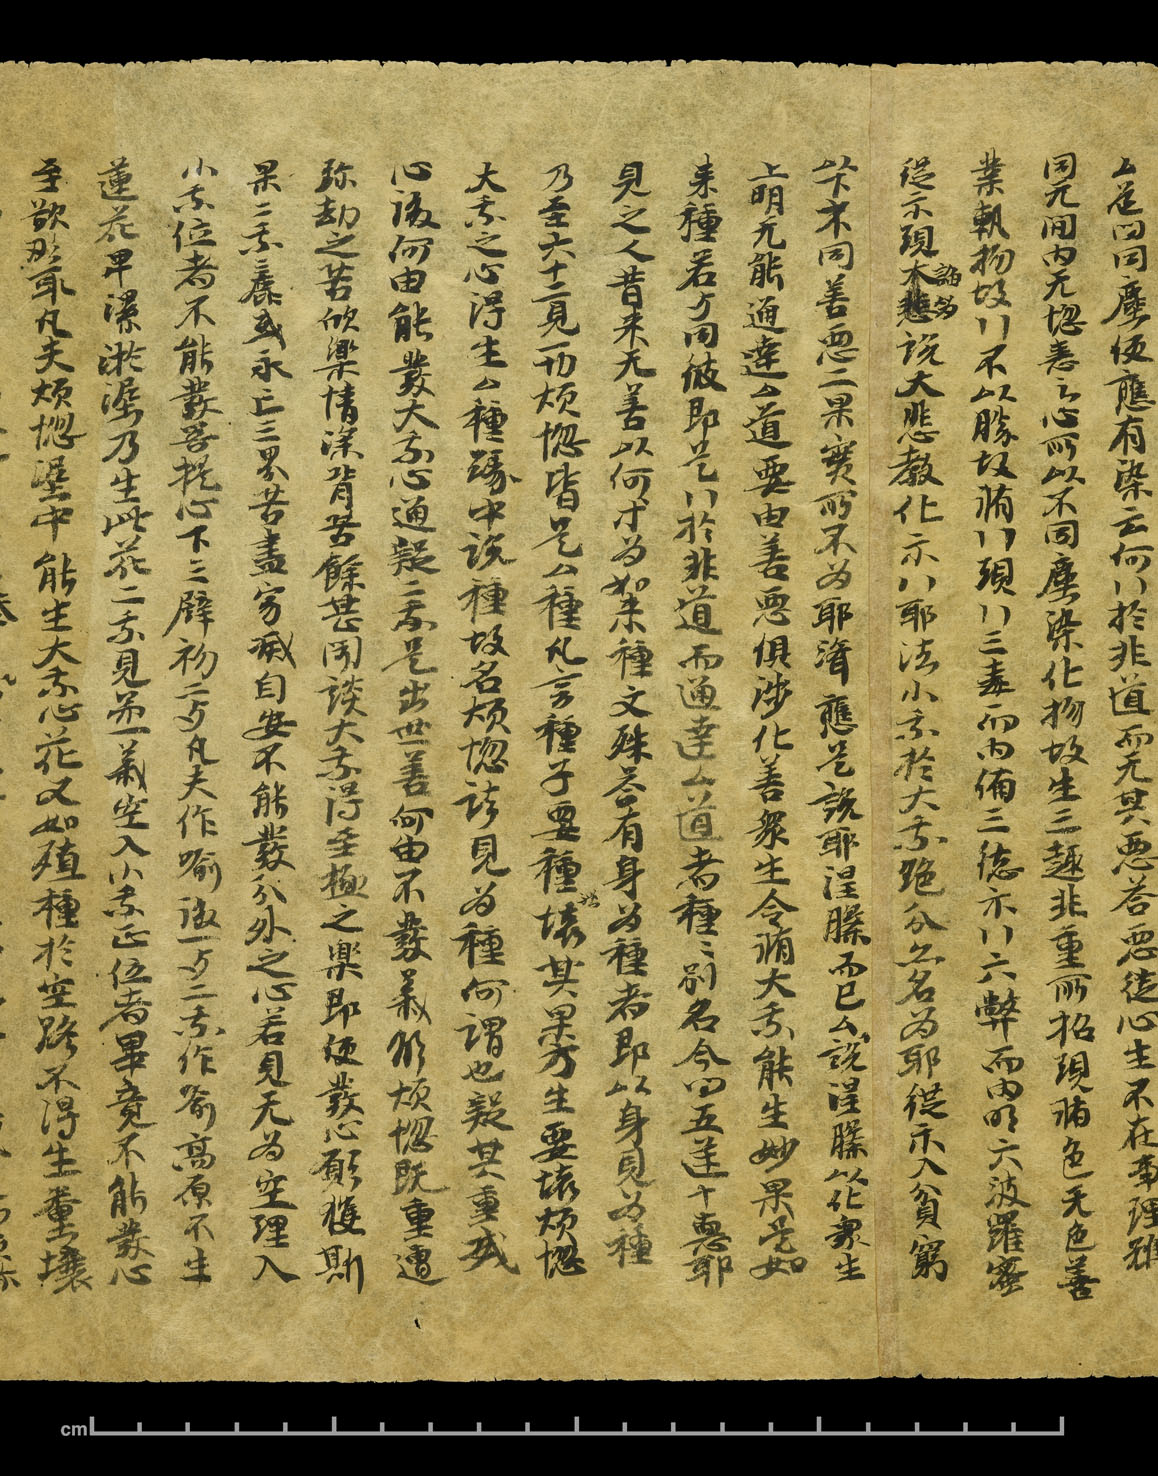 仏若口同塵便應有染云何行於非道而无其惡答惡從心生不在事理雖
同无聞內无惱恚之心所以不同塵染化物故生三趣非重所招現脩色无色善
業軌物故行不以勝故脩行現行三毒而內備三德示行六弊而內明六波羅蜜
從示現諂為本悲說大悲教化示行耶法小乘於大乘絕分亦名為耶從示入貧窮
本同善惡二果實所不為耶濟應是說耶涅槃而已仏說涅槃以化衆生
上明无能通達仏道要由善惡俱涉化善衆生令脩大乘能生妙果是如
來種若方同彼即是行於非道而通達仏道者種〻別名今曰五逆十惡耶
見之人昔來无善以何才為如來種文殊答有身為種者即以身見為種
乃至六十二見一切煩惱皆是仏種凡言種子要種壞其果方生要壞煩惱
大乘之心得生仏種緣中說種故名煩惱諸見為種何謂也疑其重或
心設何由能發大乘心通疑二乘是出世善何由不發義然煩惱既重遭
弥劫之苦欣樂情深背苦餘甚聞談大乘得至極之樂即便發心願獲斯
果二乘麁或永亡三界苦盡寂滅自安不能發分外之心若見无為空理入
小乘位者不能發菩提心下三譬初二方凡夫作喻後一方二乘作喻高原不生
蓮花卑濕淤埿乃生此花二乘見第一義空入小乘正位者畢竟不能發心
至欲取凡夫煩惱埿中能生大乘心花又如殖種於空終不得生糞壤